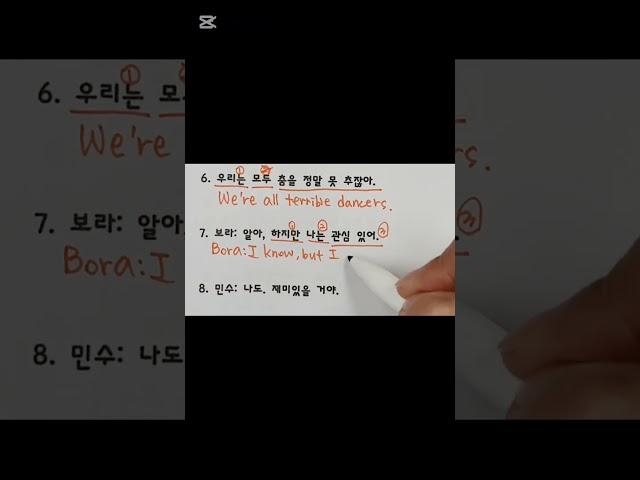 6. 우리는 모두 춤을 정말 못 추잖아.
We're all terrible dancers.
7. 보라: 알아, 하지만 나는 관심 있어.
Bora: I know, but I
8. 민수: 나도. 재미있을 거야.